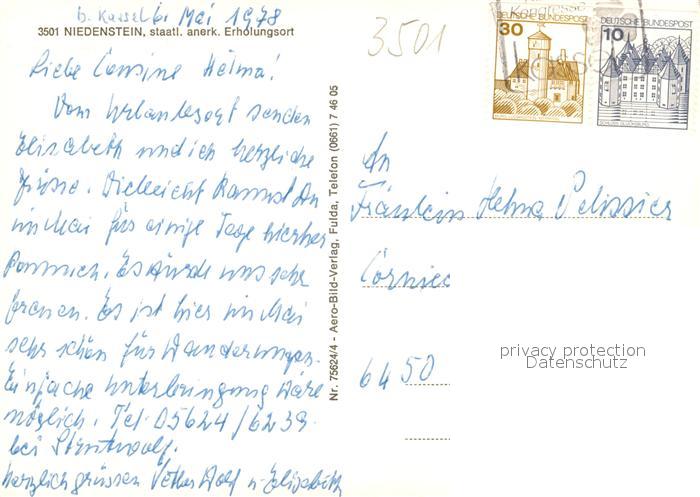 b. Kassel 6. Mai 1978
3501 NIEDENSTEIN, staatl. anerk. Erholungsort
3501
Kongresse
KASSEL
DEUTSCHE BUNDESPOST
30
DEUTSCHE BUNDESPOST
10
Liebe Cousine Helma!
Vom Urlaubsort senden
Elisabeth und ich herzliche
Grüsse. Vielleicht kannst Du
im Mai für einige Tage hierher
kommen. Es würde uns sehr
freuen. Es ist hier im Mai
sehr schön für Wanderungen.
Einfache Unterbringung wäre
möglich. Tel. 05624/6239
bei
herzlich grüssen Vetter u. Elisabeth
Nr. 75624/4 - Aero-Bild-Verlag, Fulda, Telefon (0661) 7 46 05
An
Fräulein Helma Pelissier
6450
privacy protection
Datenschutz